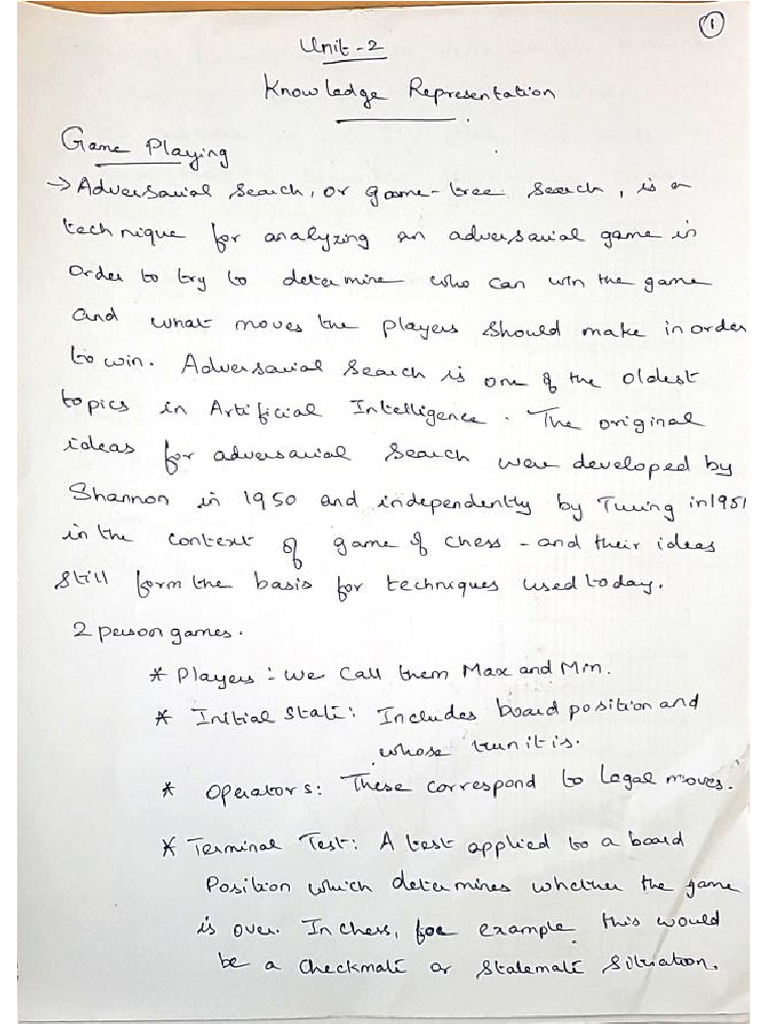 1
Unit-2
Knowledge Representation
Game Playing
→ Adversarial Search, or game-tree search, is a
technique for analyzing an adversarial game in
order to try to determine who can win the game
and what moves the players should make in order
to win. Adversarial Search is one of the oldest
topics in Artificial Intelligence. The original
ideas for adversarial Search were developed by
Shannon in 1950 and independently by Turing in 1951
in the context of game of chess - and their ideas
still form the basis for techniques used today.
2 person games.
* Players :- We Call them Max and Min.
* Initial State: Includes board position and
whose turn it is.
* Operators: These correspond to Legal moves.
* Terminal Test: A test applied to a board
Position which determines whether the game
is over. In chess, for example this would
be a checkmate or Stalemate Situation.